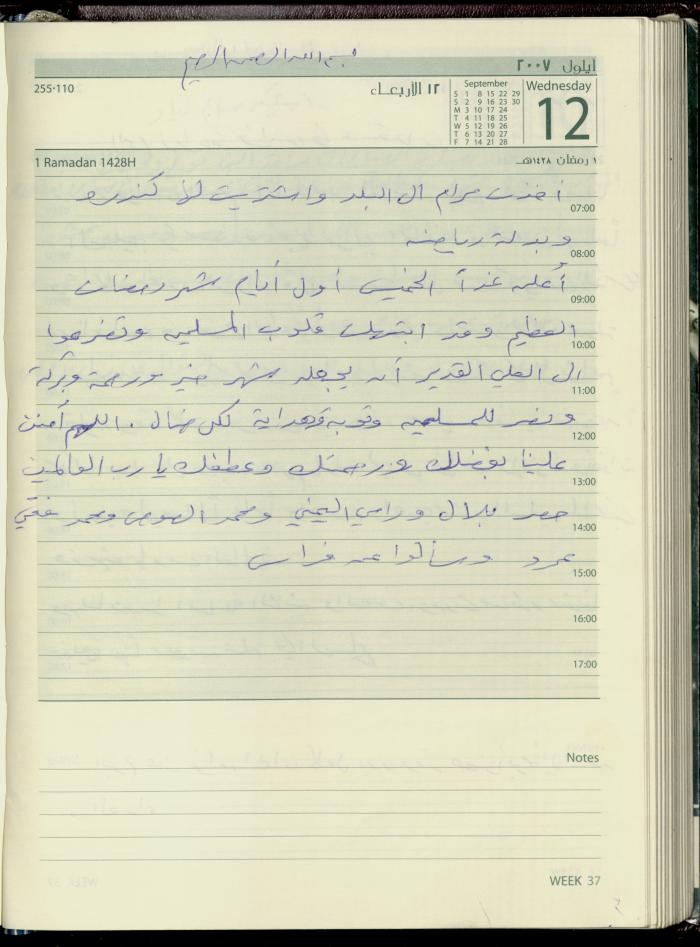 بسم الله الرحمن الرحيم
أيلول ٢٠٠٧
255-110
١٢ الأربعاء
September
S 1 8 15 22 29
S 2 9 16 23 30
M 3 10 17 24
T 4 11 18 25
W 5 12 19 26
T 6 13 20 27
F 7 14 21 28
Wednesday
12
1 Ramadan 1428H
١ رمضان ١٤٢٨هـ
أخذت مرام الى البلد واشتريت لها كندره
07:00
وبدلة رياضه
08:00
أُعلن غداً الخميس أول أيام شهر رمضان
09:00
العظيم وقد ابتهلت قلوب المسلمين وتضرعوا
10:00
الى العلي القدير أن يجعله شهر خير ورحمة وبركة
11:00
ونصر للمسلمين وتوبة وهداية لكل ضال . اللهم أمنن
12:00
علينا بفضلك ورحمتك وعطفك يا رب العالمين
13:00
حضر بلال ورامي اليمني ومحمد الصوص ومحمد
14:00
وسألوا عن فراس
15:00
16:00
17:00
Notes
WEEK 37